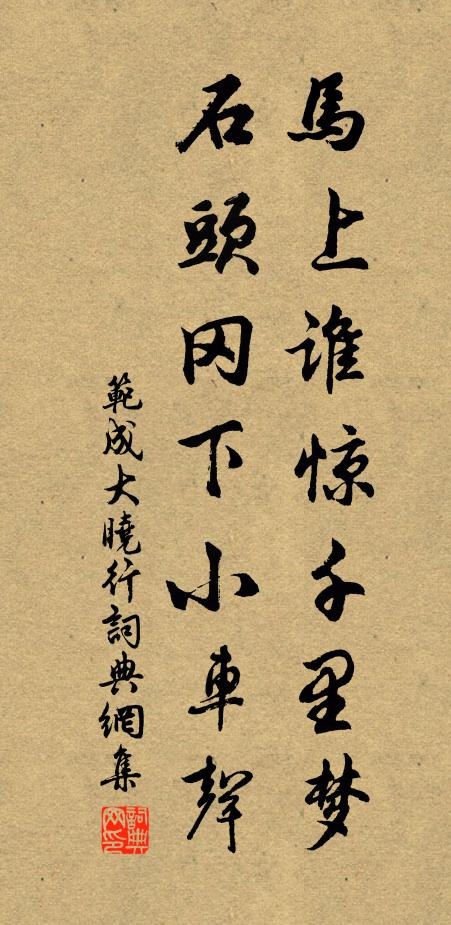 馬上誰惊千里梦
石頭冈下小車聲
範成大曉行詞典網集
詞典網印